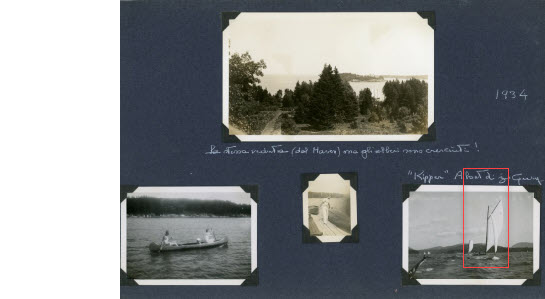 1934
La stessa veduta (dal Maine) ma gli alberi sono cresciuti!
"Kipper" A boat di